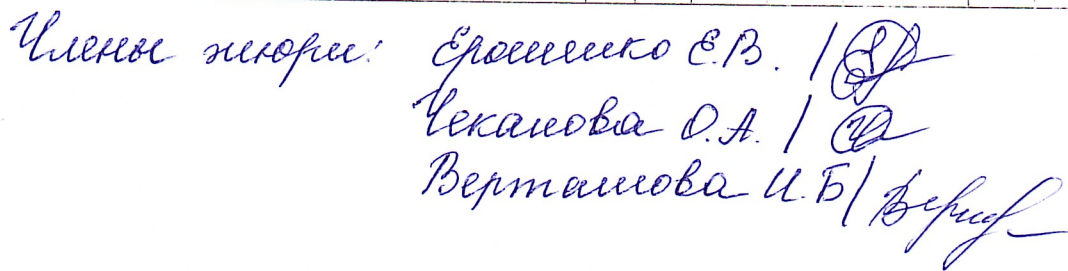 Члены жюри: Ерошенко Е.В. /
Чеканова О.А. /
Верташова И.Б /